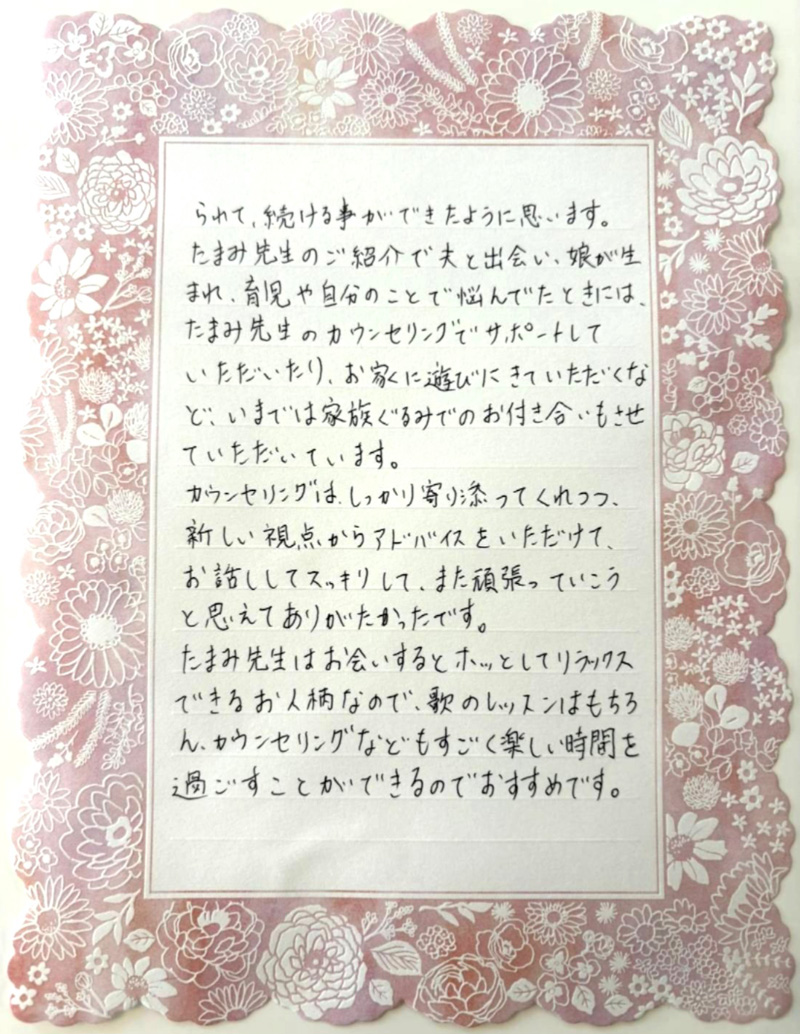 られて、続ける事ができたように思います。
たまみ先生のご紹介で夫と出会い、娘が生
まれ、育児や自分のことで悩んでたときには、
たまみ先生のカウンセリングでサポートして
いただいたり、お家くに遊びにきていただくな
ど、いまでは家族ぐるみでのお付き合いもさせ
ていただいています。
カウンセリングは、しっかり寄り添ってくれつつ、
新しい視点からアドバイスをいただけて、
お話ししてスッキリして、また頑張っていこう
と思えてありがたかったです。
たまみ先生はお会いするとホッとしてリラックス
できるお人柄なので、歌のレッスンはもちろ
ん、カウンセリングなどもすごく楽しい時間を
過ごすことができるのでおすすめです。